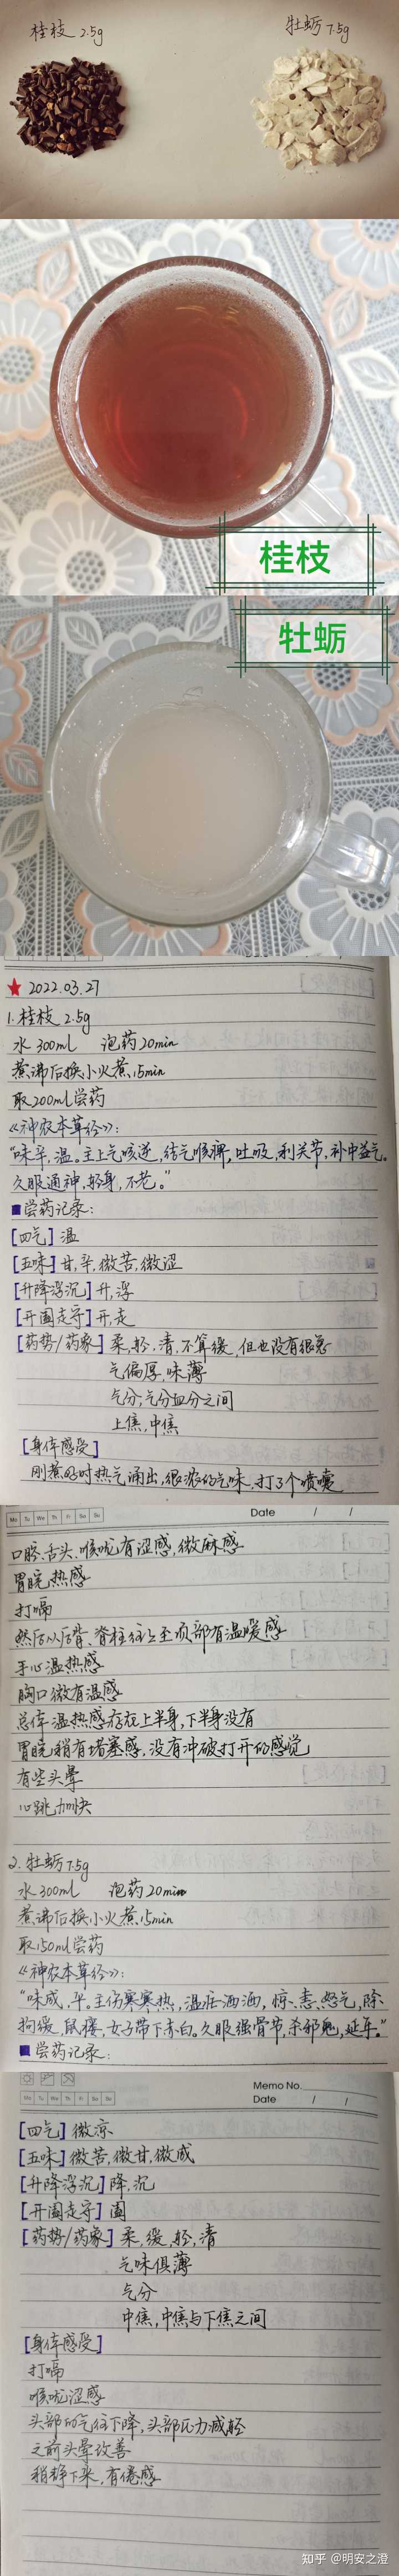 桂枝 2.5g
牡蛎 7.5g
桂枝
牡蛎
★ 2022.03.27
1.桂枝 2.5g
水 300ml 泡药20min
煮沸后换小火煮15min
取200ml尝药
《神农本草经》:
“味辛,温。主上气咳逆,结气喉痹,吐吸,利关节,补中益气。
久服通神,轻身,不老。”
■尝药记录:
[四气] 温
[五味] 甘,辛,微苦,微涩
[升降浮沉] 升,浮
[开阖走守] 开,走
[药势/药象] 柔,轻,清,不算缓,但也没有很急
气偏厚,味薄
气分;气分血分之间
上焦,中焦
[身体感受]
刚煮好时热气涌出,很浓的气味,打了个喷嚏
Mo Tu We Th Fr Sa Su
Date / /
口腔、舌头、喉咙有涩感,微麻感
胃脘热感
打嗝
然后从后背、脊柱往上至项部有温暖感
手心温热感
胸口微有温感
总体温热感存在上半身,下半身没有
胃脘稍有堵塞感,没有冲破打开的感觉
有些头晕
心跳加快
2.牡蛎 7.5g
水 300ml 泡药20min
煮沸后换小火煮15min
取150ml尝药
《神农本草经》:
“味咸,平。主伤寒寒热,温疟洒洒,惊、恚、怒气,除
拘缓,鼠瘘,女子带下赤白。久服强骨节,杀邪鬼,延年。”
■尝药记录:
Memo No.
Mo Tu We Th Fr Sa Su
Date / /
[四气] 微凉
[五味] 微苦,微甘,微咸
[升降浮沉] 降,沉
[开阖走守] 阖
[药势/药象] 柔,缓,轻,清
气味俱薄
气分
中焦,中焦与下焦之间
[身体感受]
打嗝
喉咙涩感
头部的气往下降,头部压力减轻
之前头晕改善
稍静下来,有倦感
知乎 @明安之澄